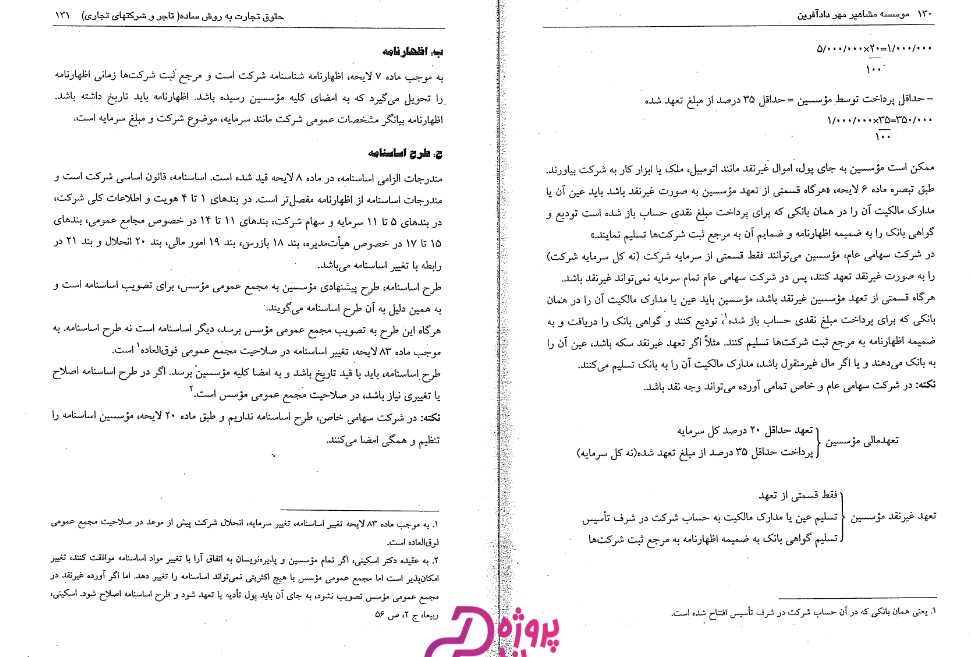 ۱۳۰ موسسه مشاهیر مهر دادآفرین
۵/۰۰۰/۰۰۰×۲۰=۱/۰۰۰/۰۰۰
۱۰۰
– حداقل پرداخت توسط مؤسسین = حداقل ۳۵ درصد از مبلغ تعهد شده
۱/۰۰۰/۰۰۰×۳۵=۳۵۰/۰۰۰
۱۰۰
ممکن است مؤسسین به جای پول، اموال غیرنقد مانند اتومبیل، ملک یا ابزار کار به شرکت بیاورند.
طبق تبصره ماده ۶ لایحه، «هرگاه قسمتی از تعهد مؤسسین به صورت غیرنقد باشد باید عین آن یا
مدارک مالکیت آن را در همان بانکی که برای پرداخت مبلغ نقدی حساب باز شده است تودیع و
گواهی بانک را به ضمیمه اظهارنامه و ضمایم آن به مرجع ثبت شرکت‌ها تسلیم نمایند.»
در شرکت سهامی عام، مؤسسین می‌توانند فقط قسمتی از سرمایه شرکت (نه کل سرمایه شرکت)
را به صورت غیرنقد تعهد کنند، پس در شرکت سهامی عام تمام سرمایه نمی‌تواند غیرنقد باشد.
هرگاه قسمتی از تعهد مؤسسین غیرنقد باشد، مؤسسین باید عین یا مدارک مالکیت آن را در همان
بانکی که برای پرداخت مبلغ نقدی حساب باز شده۱، تودیع کنند و گواهی بانک را دریافت و به
ضمیمه اظهارنامه به مرجع ثبت شرکت‌ها تسلیم کنند. مثلاً اگر غیرنقد سکه باشد، عین آن را
به بانک می‌دهند و یا اگر مال غیرمنقول باشد، مدارک مالکیت آن را به بانک تسلیم می‌کنند.
نکته: در شرکت سهامی عام و خاص تمامی آورده می‌تواند وجه نقد باشد.
تعهد حداقل ۲۰ درصد کل سرمایه
تعهدمالی مؤسسین
پرداخت حداقل ۳۵ درصد از مبلغ تعهد شده(نه کل سرمایه)
فقط قسمتی از تعهد
تعهد غیرنقد مؤسسین تسلیم عین یا مدارک مالکیت به حساب شرکت در شرف تأسیس
تسلیم گواهی بانک به ضمیمه اظهارنامه به مرجع ثبت شرکت‌ها
۱. یعنی همان بانکی که در آن حساب شرکت در شرف تأسیس افتتاح شده است.
حقوق تجارت به روش ساده( تاجر و شرکتهای تجاری) ۱۳۱
ب. اظهارنامه
به موجب ماده ۷ لایحه، اظهارنامه شناسنامه شرکت است و مرجع ثبت شرکت‌ها زمانی اظهارنامه
را تحویل می‌گیرد که به امضای کلیه مؤسسین رسیده باشد. اظهارنامه باید تاریخ داشته باشد.
اظهارنامه بیانگر مشخصات عمومی شرکت مانند سرمایه، موضوع شرکت و مبلغ سرمایه است.
ج. طرح اساسنامه
مندرجات الزامی اساسنامه، در ماده ۸ لایحه قید شده است. اساسنامه، قانون اساسی شرکت است و
مندرجات اساسنامه از اظهارنامه مفصل‌تر است. در بندهای ۱ تا ۴ هویت و اطلاعات کلی شرکت،
در بندهای ۵ تا ۱۱ سرمایه و سهام شرکت، بندهای ۱۱ تا ۱۴ در خصوص مجامع عمومی، بندهای
۱۵ تا ۱۷ در خصوص هیأت‌مدیره، بند ۱۸ بازرس، بند ۱۹ امور مالی، بند ۲۰ انحلال و بند ۲۱ در
رابطه با تغییر اساسنامه می‌باشد.
طرح اساسنامه، طرح پیشنهادی مؤسسین به مجمع عمومی مؤسس، برای تصویب اساسنامه است و
به همین دلیل به آن طرح اساسنامه می‌گویند.
هرگاه این طرح به تصویب مجمع عمومی مؤسس برسد، دیگر اساسنامه است نه طرح اساسنامه. به
موجب ماده ۸۳ لایحه، تغییر اساسنامه در صلاحیت مجمع عمومی فوق‌العاده۱ است.
طرح اساسنامه، باید با قید تاریخ باشد و به امضا کلیه مؤسسین برسد. اگر در طرح اساسنامه اصلاح
یا تغییری نیاز باشد، در صلاحیت مجمع عمومی مؤسس است.۲
نکته: در شرکت سهامی خاص، طرح اساسنامه نداریم و طبق ماده ۲۰ لایحه، مؤسسین اساسنامه را
تنظیم و همگی امضا می‌کنند.
۱. به موجب ماده ۸۳ لایحه تغییر اساسنامه، تغییر سرمایه، انحلال شرکت پیش از موعد در صلاحیت مجمع عمومی
فوق‌العاده است.
۲. به عقیده دکتر اسکینی، اگر تمام مؤسسین و پذیره‌نویسان به اتفاق آرا با تغییر مواد اساسنامه موافقت کنند، تغییر
امکان‌پذیر است اما مجمع عمومی مؤسس با هیچ اکثریتی نمی‌تواند اساسنامه را تغییر دهد. اما اگر آورده غیرنقد در
مجمع عمومی مؤسس تصویب نشود، به جای آن باید پول تأدیه یا تعهد شود و طرح اساسنامه اصلاح شود. اسکینی،
ربیعا، ج ۲، ص ۵۶
پروژه